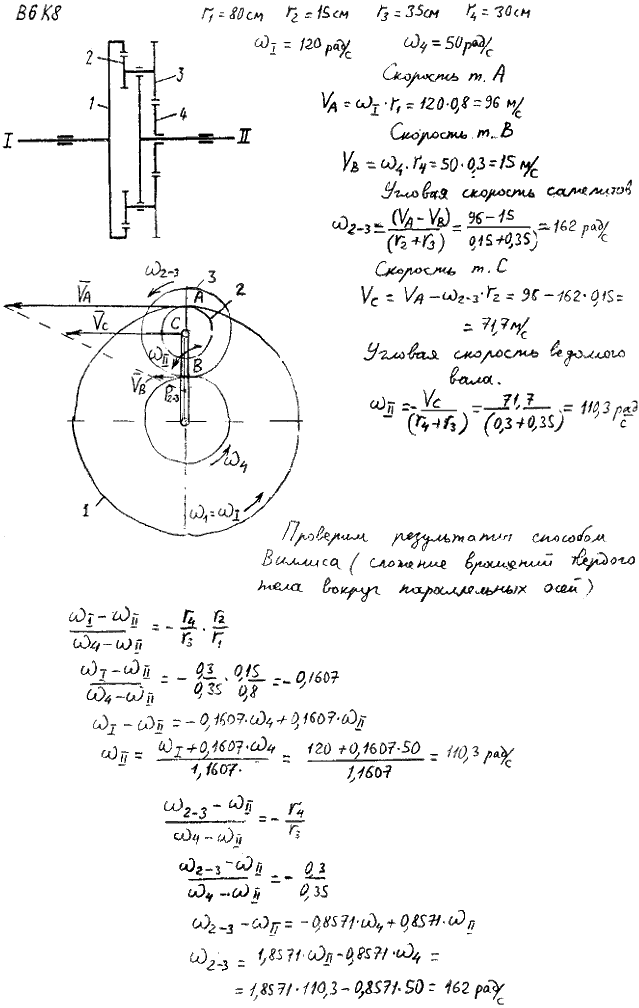 В6 К8
r1=80см r2=15см r3=35см r4=30см
ωI=120 рад/с ω4=50рад/с
Скорость т. А
VA=ωI·r1=120·0,8=96 м/с
Скорость т. В
VB=ω4·r4=50·0,3=15 м/с
Угловая скорость сателитов
ω2-3=(VA-VB)/(r2+r3)=(96-15)/(0,15+0,35)=162 рад/с
Скорость т. С
VC=VA-ω2-3·r2=96-162·0,15=
=71,7 м/с
Угловая скорость ведомого
вала.
ωII=VC/(r4+r3)=71,7/(0,3+0,35)=110,3 рад/с
I
1
2
3
4
II
ω2-3
3
VA
A
2
VC
C
ωII
B
VB
P2-3
ω4
1
ω1=ωI
Проверим результаты способом
Виллиса (сложение вращений твердого
тела вокруг параллельных осей)
(ωI-ωII)/(ω4-ωII)=-r4/r3·r2/r1
(ωI-ωII)/(ω4-ωII)=-0,3/0,35·0,15/0,8=-0,1607
ωI-ωII=-0,1607·ω4+0,1607·ωII
ωII=(ωI+0,1607·ω4)/1,1607=(120+0,1607·50)/1,1607=110,3 рад/с
(ω2-3-ωII)/(ω4-ωII)=-r4/r3
(ω2-3-ωII)/(ω4-ωII)=-0,3/0,35
ω2-3-ωII=-0,8571·ω4+0,8571·ωII
ω2-3=1,8571·ωII-0,8571·ω4=
=1,8571·110,3-0,8571·50=162 рад/с